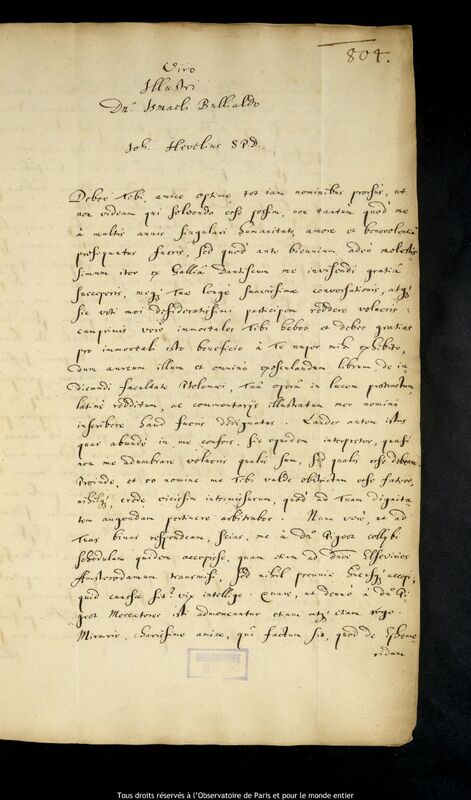 804.
Viro
Illustri
Dn. Ismaeli Bullialdo
Joh. Hevelius S P D.
Debeo Tibi, amice optime, tot iam nominibus prorsus, ut
non videam qui solvendo esse possim, non tantum quod me
à multis annis singulari humanitate, amore et benevolentia
prosequutus fueris, sed quod ante biennium adeò molestis
simum iter ex Gallia Dantiscum me invisendi gratiâ
susceperis, meq; Tuae longè suavissimae conversationis, atq;
sic voti mei desideratissimi participem reddere volueris:
cumprimis verò immortales Tibi habeo et debeo gratias
pro immortali isto beneficio à Te nuper mihi exhibito,
dum aureum illum et omnino exosculandum librum de iu
dicandi facultate Ptolemaei, Tuâ operâ in lucem protractum,
latinè redditum, ac commentariis illustratum meo nomini
inscribere haud fueris dedignatus. Laudes autem istas
quas abundè in me confers, sic equidem interpretor, quasi
non me adumbrare volueris qualis sum, sed qualis esse debeam
Proinde, et eo nomine me Tibi valde obstrictum esse fateor,
nihilq; crede vicissim intermissurum, quod ad Tuam dignita-
tem augendam pertinere arbitrabor. Nunc verò, ut ad
Tuas binas respondeam, scias, me à dn. Pigou collybi
schedulam quidem accepisse, quam etiam ad dnos Elsevirios
Amsterodamum transmisi, sed nihil pecuniae hucusq; accepi;
quid causae sit, vix intelligo. Quare, ut denuò à dn.
Mercatores isti admoneantur etiam atq; etiam rogo.
Miraris, charissime amice, qui factum sit, quod de Epheme
ridum
OBSERVATOIRE
Tous droits réservés à l'Observatoire de Paris et pour le monde entier